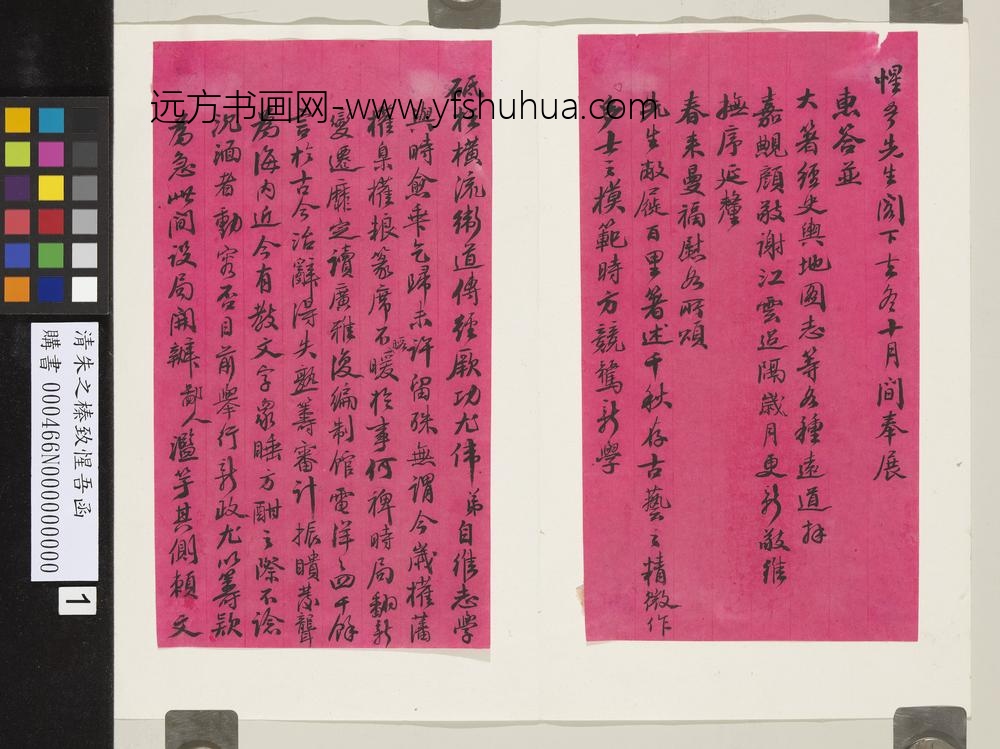 惺吾先生閣下去冬十月間奉展
惠答並
大著經史輿地圖志等各種遠道拜
嘉覥顏敬謝江雲迢隔歲月更新敬維
撫序延釐
春來曼福慰如所頌
先生敝屣百里著述千秋存古藝之精微作
多士之模範時方競騖新學
砥柱橫流衛道傳經厥功尤偉弟自維志學
與時愈乖乞歸未許留殊無謂今歲權藩
權臬權糧篆席不暇暖於事何裨時局翻新
變遷靡定讀廣雅復編制館電洋洋四千餘
言於古今治辭得失鑒籌審計振聵發聾
為海內近今有數文字眾睡方酣之際不諗
沉湎者動容否目前舉行新政尤以籌款
為急此間設局開辦鄙人濫竽其側賴文
远方书画网-www.yfshuhua.com
清朱之榛致惺吾函
購書 000466N000000000
1